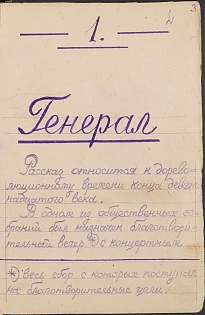 3
— 1. —
Генерал
Рассказ относится к дорево-
люционному времени конца девят-
надцатого века.
В одном из общественных со-
браний был назначен благотвори-
тельный вечер *) с концертным
*) Весь сбор с которых поступал
на благотворительные цели.